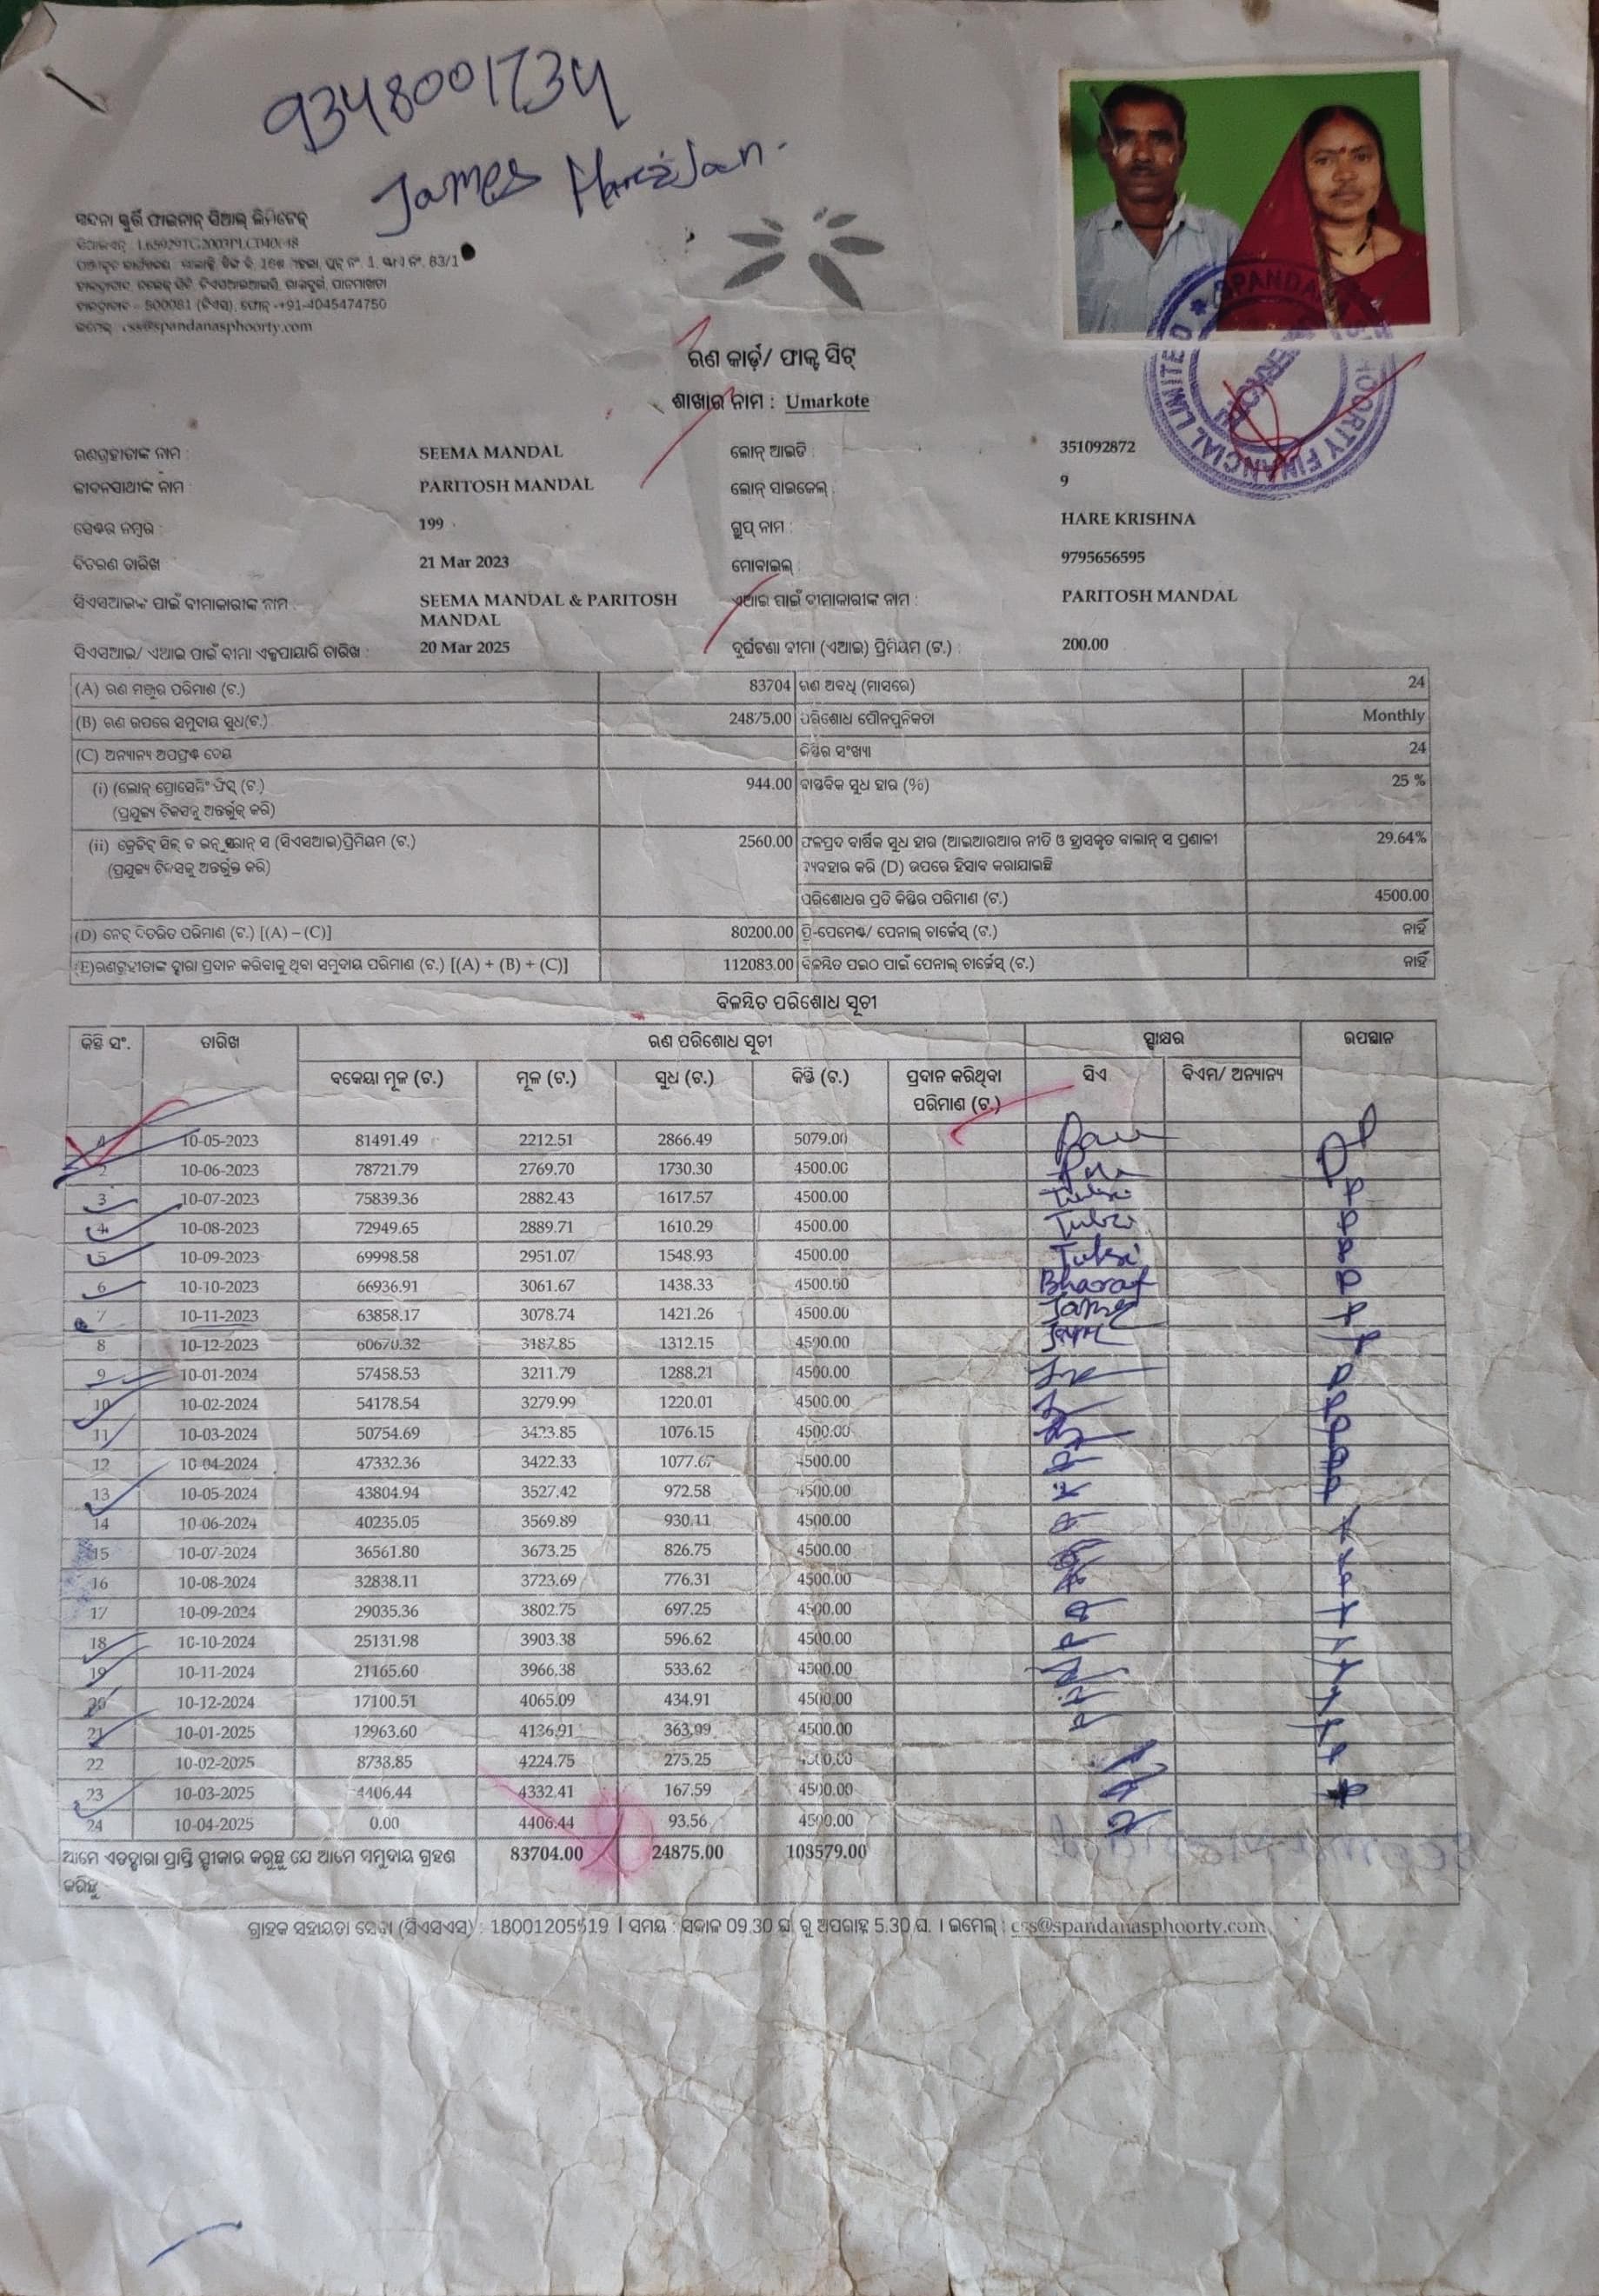 9348001734
James Harijan.
ସ୍ପନ୍ଦନା ସ୍ଫୁର୍ତି ଫାଇନାନ୍ ସିଆଲ୍ ଲିମିଟେଡ୍
ହାଇଦ୍ରାବାଦ - 500081 (ଟିଏସ୍), ଫୋନ୍ -+91-4045474750
ଇମେଲ୍ : css@spandanasphoorty.com
ଋଣ କାର୍ଡ଼/ ଫାକ୍ଟ ସିଟ୍
ଶାଖାର ନାମ : Umarkote
ଋଣଗ୍ରହୀତାଙ୍କ ନାମ : SEEMA MANDAL ଲୋନ୍ ଆଇଡି : 351092872
ଜୀବନସାଥୀଙ୍କ ନାମ : PARITOSH MANDAL ଲୋନ୍ ସାଇକେଲ୍ : 9
ସେଣ୍ଟର ନମ୍ବର : 199 ଗ୍ରୁପ୍ ନାମ : HARE KRISHNA
ବିତରଣ ତାରିଖ 21 Mar 2023 ମୋବାଇଲ୍ : 9795656595
ସିଏସଆଇଙ୍କ ପାଇଁ ବୀମାକାରୀଙ୍କ ନାମ : SEEMA MANDAL & PARITOSH ଏଆଇ ପାଇଁ ବୀମାକାରୀଙ୍କ ନାମ : PARITOSH MANDAL
MANDAL
ସିଏସଆଇ/ ଏଆଇ ପାଇଁ ବୀମା ଏକ୍ସପାୟାରି ତାରିଖ : 20 Mar 2025 ଦୁର୍ଘଟଣା ବୀମା (ଏଆଇ) ପ୍ରିମିୟମ (ଟ.) : 200.00
(A) ଋଣ ମଞ୍ଜୁର ପରିମାଣ (ଟ.) 83704 ଋଣ ଅବଧି (ମାସରେ) 24
(B) ଋଣ ଉପରେ ସମୁଦାୟ ସୁଧ(ଟ.) 24875.00 ପରିଶୋଧ ପୌନପୁନିକତା Monthly
(C) ଅନ୍ୟାନ୍ୟ ଅପଫ୍ରଣ୍ଟ ଦେୟ କିସ୍ତିର ସଂଖ୍ୟା 24
(i) (ଲୋନ୍ ପ୍ରୋସେସିଂ ଫିସ୍ (ଟ.) 944.00 ବାସ୍ତବିକ ସୁଧ ହାର (%) 25 %
(ପ୍ରଯୁଜ୍ୟ ଟିକସକୁ ଅନ୍ତର୍ଭୁକ୍ତ କରି)
(ii) କ୍ରେଡିଟ୍ (ସିଏସଆଇ)ପ୍ରିମିୟମ (ଟ.) 2560.00 ଫଳପ୍ରଦ ବାର୍ଷିକ ସୁଧ ହାର (ଆଇଆରଆର ନୀତି ଓ ହ୍ରାସକୃତ ବାଲାନ୍ ସ ପ୍ରଣାଳୀ 29.64%
(ପ୍ରଯୁଜ୍ୟ ଟିକସକୁ ଅନ୍ତର୍ଭୁକ୍ତ କରି) ବ୍ୟବହାର କରି (D) ଉପରେ ହିସାବ କରାଯାଇଛି
ପରିଶୋଧର ପ୍ରତି କିସ୍ତିର ପରିମାଣ (ଟ.) 4500.00
(D) ନେଟ୍ ବିତରିତ ପରିମାଣ (ଟ.) [(A) – (C)] 80200.00 ପ୍ରି-ପେମେଣ୍ଟ/ ପେନାଲ୍ ଚାର୍ଜେସ୍ (ଟ.) ନାହିଁ
(E)ଋଣଗ୍ରହୀତାଙ୍କ ଦ୍ୱାରା ପ୍ରଦାନ କରିବାକୁ ଥିବା ସମୁଦାୟ ପରିମାଣ (ଟ.) [(A) + (B) + (C)] 112083.00 ବିଳମ୍ବିତ ପଇଠ ପାଇଁ ପେନାଲ୍ ଚାର୍ଜେସ୍ (ଟ.) ନାହିଁ
ବିଳମ୍ବିତ ପରିଶୋଧ ସୂଚୀ
କିସ୍ତି ସଂ. ତାରିଖ ଋଣ ପରିଶୋଧ ସୂଚୀ ସ୍ବାକ୍ଷର ଉପସ୍ଥାନ
ବକେୟା ମୂଳ (ଟ.) ମୂଳ (ଟ.) ସୁଧ (ଟ.) କିସ୍ତି (ଟ.) ପ୍ରଦାନ କରିଥିବା ସିଏ ବିଏମ/ ଅନ୍ୟାନ୍ୟ
ପରିମାଣ (ଟ.)
10-05-2023 81491.49 2212.51 2866.49 5079.00
2 10-06-2023 78721.79 2769.70 1730.30 4500.00
3 10-07-2023 75839.36 2882.43 1617.57 4500.00 Tulsi
4 10-08-2023 72949.65 2889.71 1610.29 4500.00 Tulsi
5 10-09-2023 69998.58 2951.07 1548.93 4500.00 Tulsi
6 10-10-2023 66936.91 3061.67 1438.33 4500.00 Bharat
7 10-11-2023 63858.17 3078.74 1421.26 4500.00 James
8 10-12-2023 60670.32 3187.85 1312.15 4500.00
9 10-01-2024 57458.53 3211.79 1288.21 4500.00
10 10-02-2024 54178.54 3279.99 1220.01 4500.00
11 10-03-2024 50754.69 3423.85 1076.15 4500.00
12 10-04-2024 47332.36 3422.33 1077.67 4500.00
13 10-05-2024 43804.94 3527.42 972.58 4500.00
14 10-06-2024 40235.05 3569.89 930.11 4500.00
15 10-07-2024 36561.80 3673.25 826.75 4500.00
16 10-08-2024 32838.11 3723.69 776.31 4500.00
17 10-09-2024 29035.36 3802.75 697.25 4500.00
18 10-10-2024 25131.98 3903.38 596.62 4500.00
19 10-11-2024 21165.60 3966.38 533.62 4500.00
20 10-12-2024 17100.51 4065.09 434.91 4500.00
21 10-01-2025 12963.60 4136.91 363.09 4500.00
22 10-02-2025 8738.85 4224.75 275.25 4500.00
23 10-03-2025 4406.44 4332.41 167.59 4500.00
24 10-04-2025 0.00 4406.44 93.56 4500.00
ଆମେ ଏତଦ୍ୱାରା ପ୍ରାପ୍ତି ସ୍ବୀକାର କରୁଛୁ ଯେ ଆମେ ସମୁଦାୟ ଗ୍ରହଣ 83704.00 24875.00 108579.00
କରିଛୁ
ଗ୍ରାହକ ସହାୟତା ସେବା (ସିଏସଏସ) : 18001205519 । ସମୟ : ସକାଳ 09.30 ଘ. ରୁ ଅପରାହ୍ନ 5.30 ଘ. । ଇମେଲ୍ : css@spandanasphoorty.com